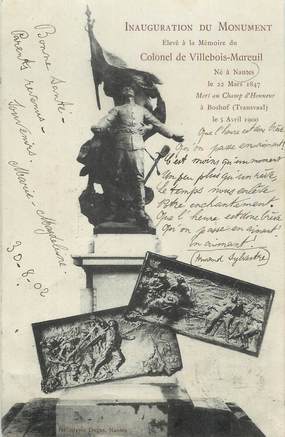 INAUGURATION DU MONUMENT
Elevé à la Mémoire du
Colonel de Villebois-Mareuil
Né à Nantes
le 22 Mars 1847
Mort au Champ d'Honneur
à Boshof (Transvaal)
le 5 Avril 1900
Bonne Santé
Parents revenus
Souvenirs
Marie-Magdeleine
30-8-02
Que l'heure est donc brève
Qu'on passe en aimant
C'est moins qu'un moment
Un peu plus qu'un rêve
Le temps nous enlève
Notre enchantement.
Que l'heure est donc brève
Qu'on passe en aimant
en aimant!
Armand Sylvestre
Nantes